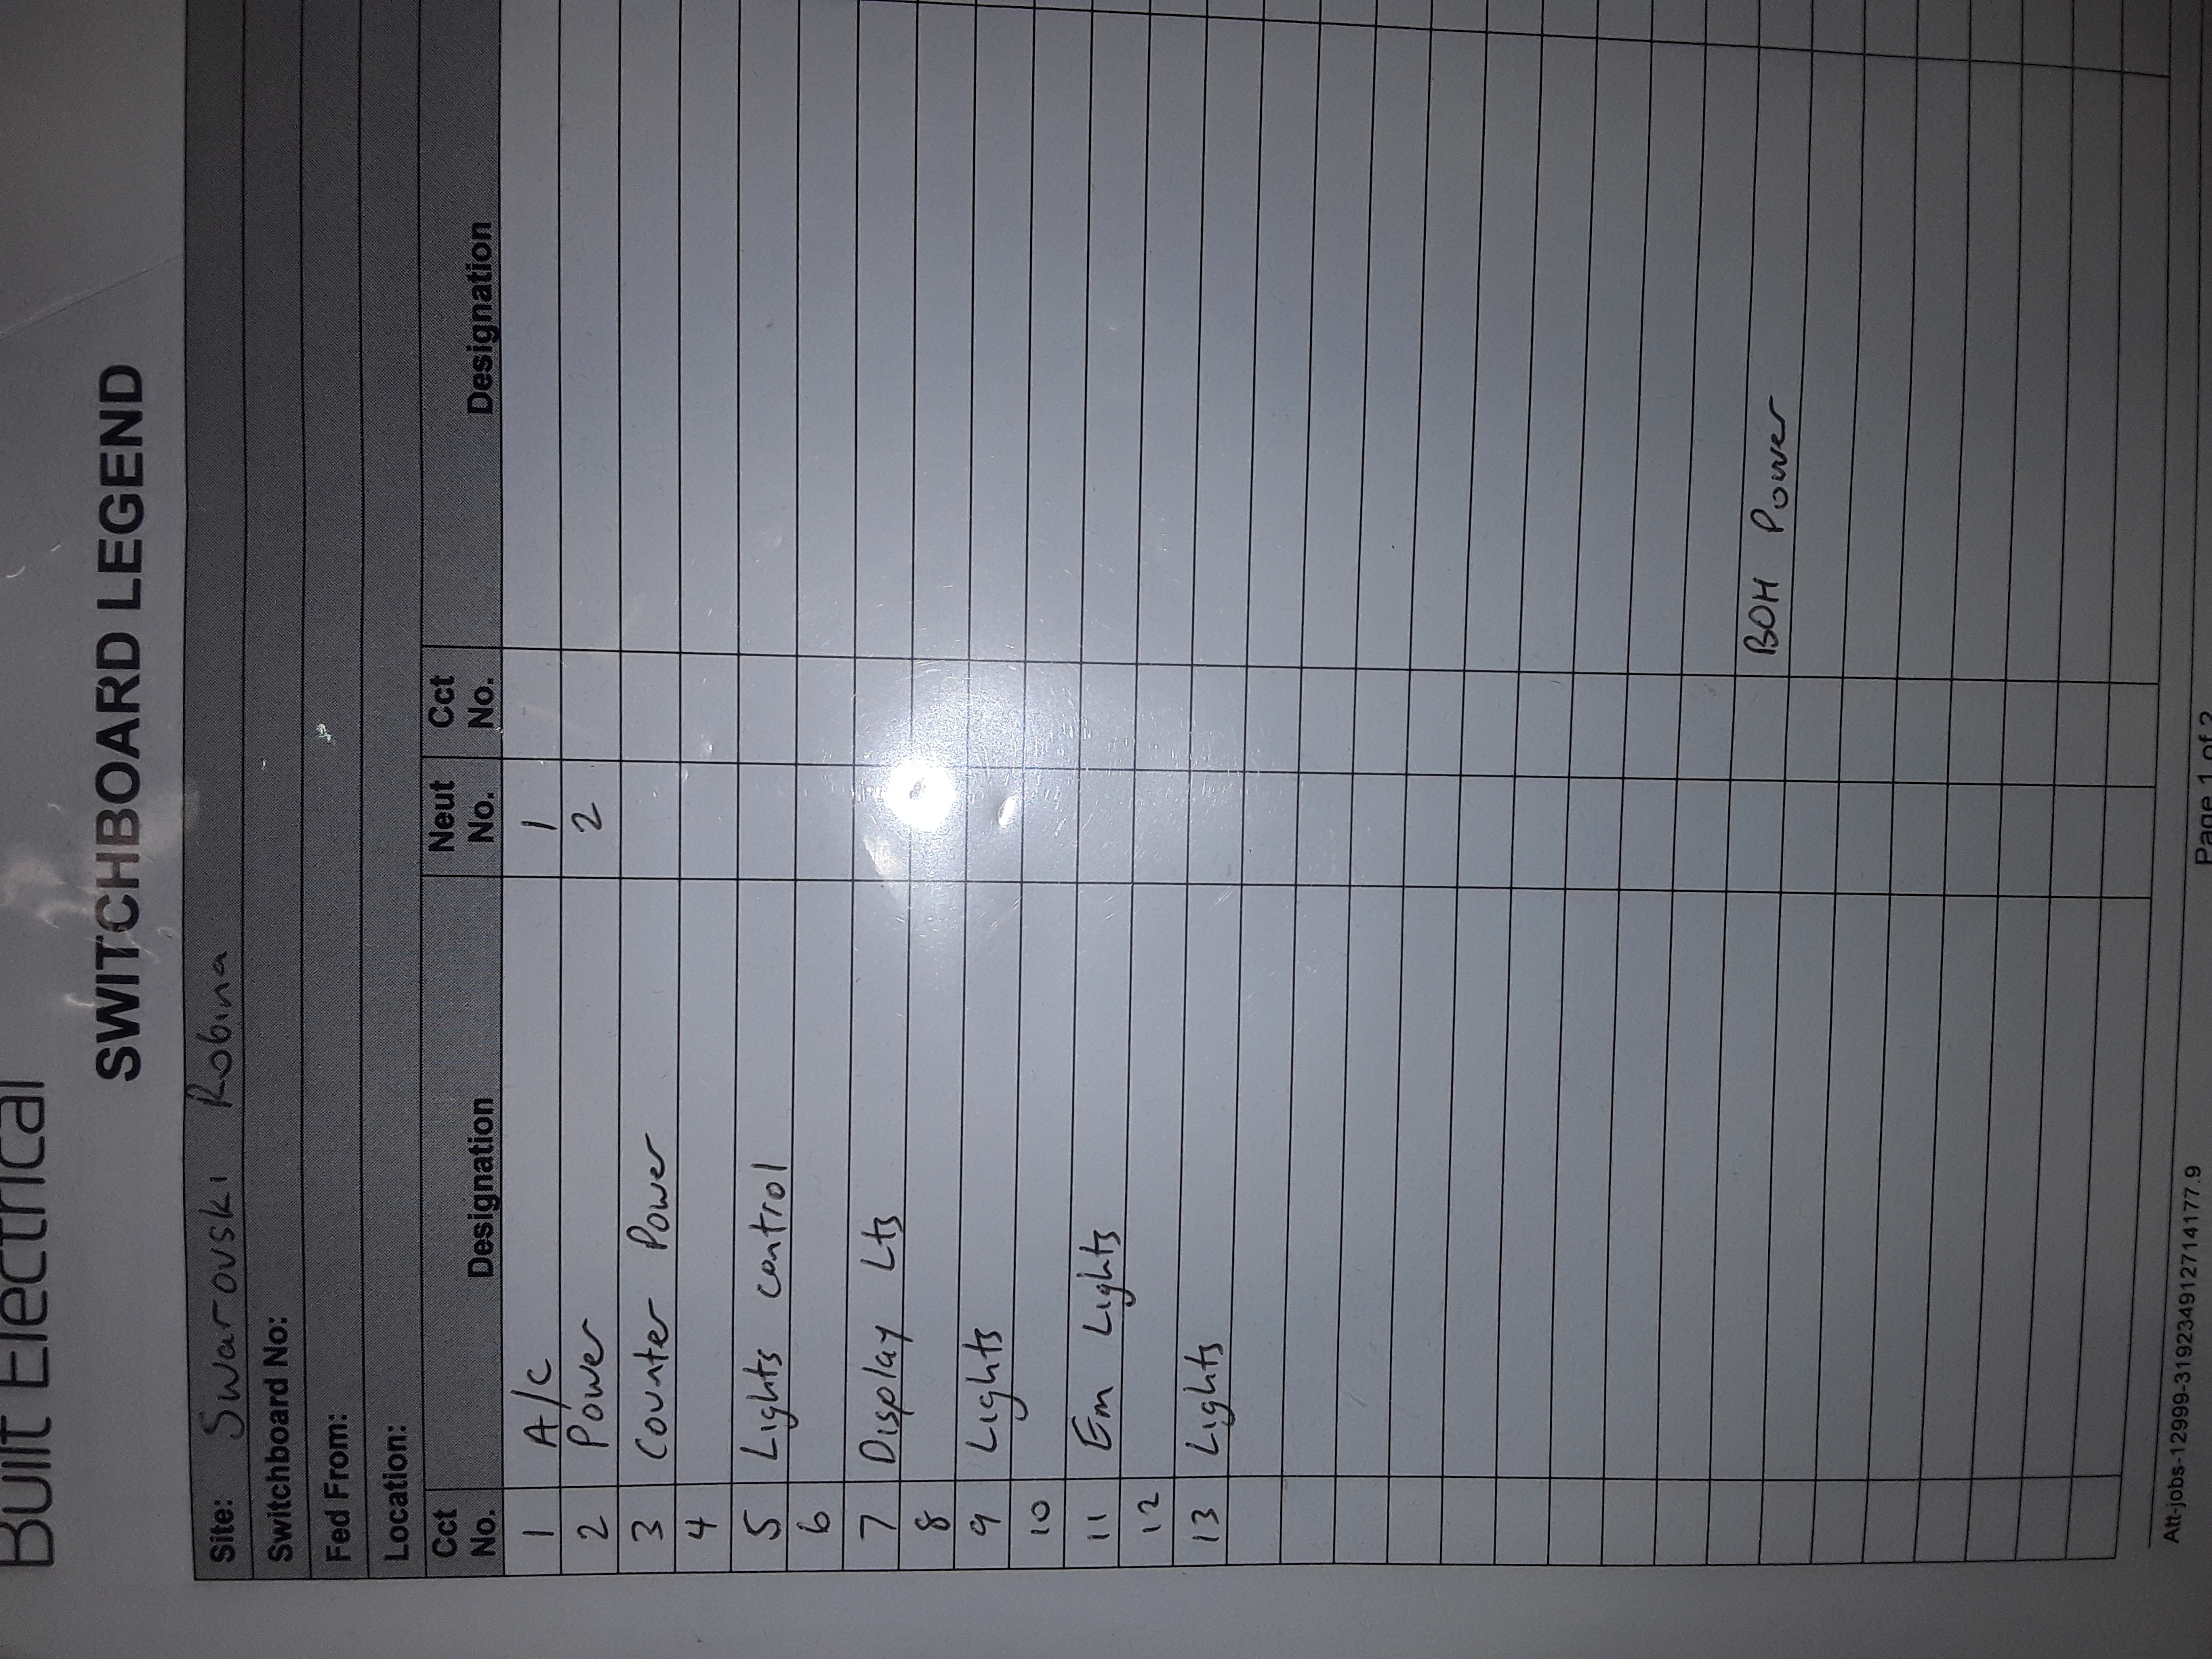 Built Electrical
SWITCHBOARD LEGEND
Site: Swarovski Robina
Switchboard No:
Fed From:
Location:
Cct No. Designation Neut No. Cct No. Designation
1 A/C 1
2 Power 2
3 Counter Power
4
5 Lights control
6
7 Display Lts
8
9 Lights
10
11 Em Lights
12
13 Lights
BOH Power
Att-jobs-12999-3192349127141477.9
Page 1 of 2